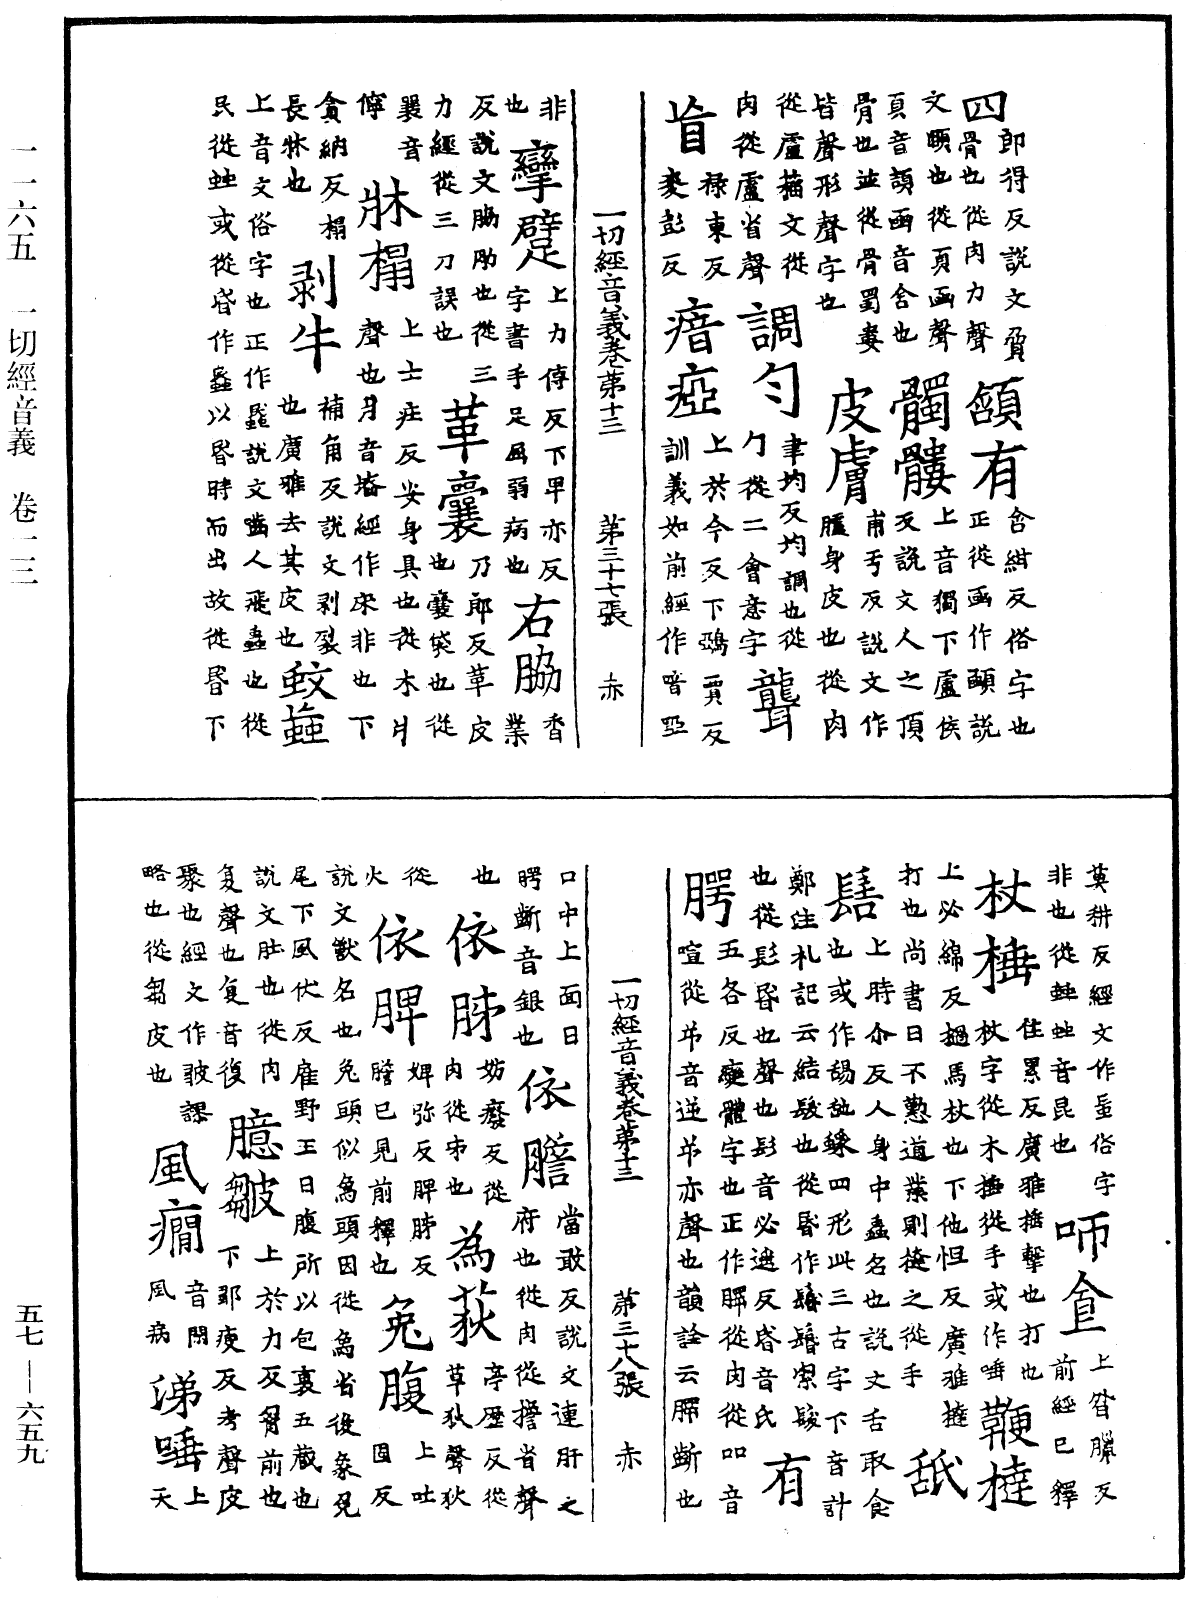 四郎得反說文𦙶骨也從肉力聲
頷有含紺反俗字也正從函作顄說文頤也從頁函聲頁音頡函音含也
髑髏上音獨下盧侯反說文人之頂骨也並從骨蜀婁皆聲形聲字也
皮膚甫亐反說文作臚身皮也從肉從盧籀文從肉從盧省聲
調勻聿均反均調也從勹從二會意字
聾祿東反
盲麥彭反
瘖瘂上於今反下鵶賈反訓義如前經作喑啞非也
攣躄上力傳反下卑亦反字書手足屈弱病也
右脇香業反說文脇肋也從三力經從三刀誤也
革囊乃郎反革皮也囊袋也從㯻音儜
牀榻上士庄反安身具也從木爿聲也爿音牆經作床非也下貪納反榻長牀也
剥牛補角反說文剥裂也廣雅去其皮也
蚊蝱上音文俗字也正作䘇說文齧人飛蟲也從民從䖵或從昏作蟁以昬時而出故從昬下
一切經音義卷苐十三 苐三十七張 赤
莫耕反經文作䖟俗字非也從䖵䖵音昆也
咂食上咎臘反前經已釋
杖棰佳累反廣雅捶擊也打也杖字從木捶從手或作唾
鞭撻上必綿反檛馬杖也下他怛反廣雅撻打也尚書曰不懃道業則撻之從手
舐上時尒反人身中蟲名也說文舌取食也或作䑛𦧇䑙四形此三古字下音計
有髻鄭注礼記云結髮也從昬作䯻鬠絜髮也從髟昏也聲也髟音必遙反昏音氏
腭五各反變體字也正作㗁從肉從吅音喧從屰音逆屰亦聲也韻詮云㗁齗也口中上面曰腭齗音銀也
依膽當敢反說文連肝之府也從肉從擔省聲也
依肺妨廢反從肉從巿也
為荻亭歷反從草狄聲狄從火
依脾婢弥反脾脖反膽已見前釋也
兔腹上吐固反說文獸名也兔頭似㲋頭因從㲋省後象兔尾下風伏反雇野王曰腹所以包裹五藏也說文肚也從肉复聲也复音復
臆皺上於力反胷前也下鄒瘦反考聲皮聚也經文作皱謬略也從芻皮也
風癇音閑風病
涕唾上天
一切經音義卷苐十三 苐三十八張 赤
一一六五 一切經音義 卷一三
五七—六五九